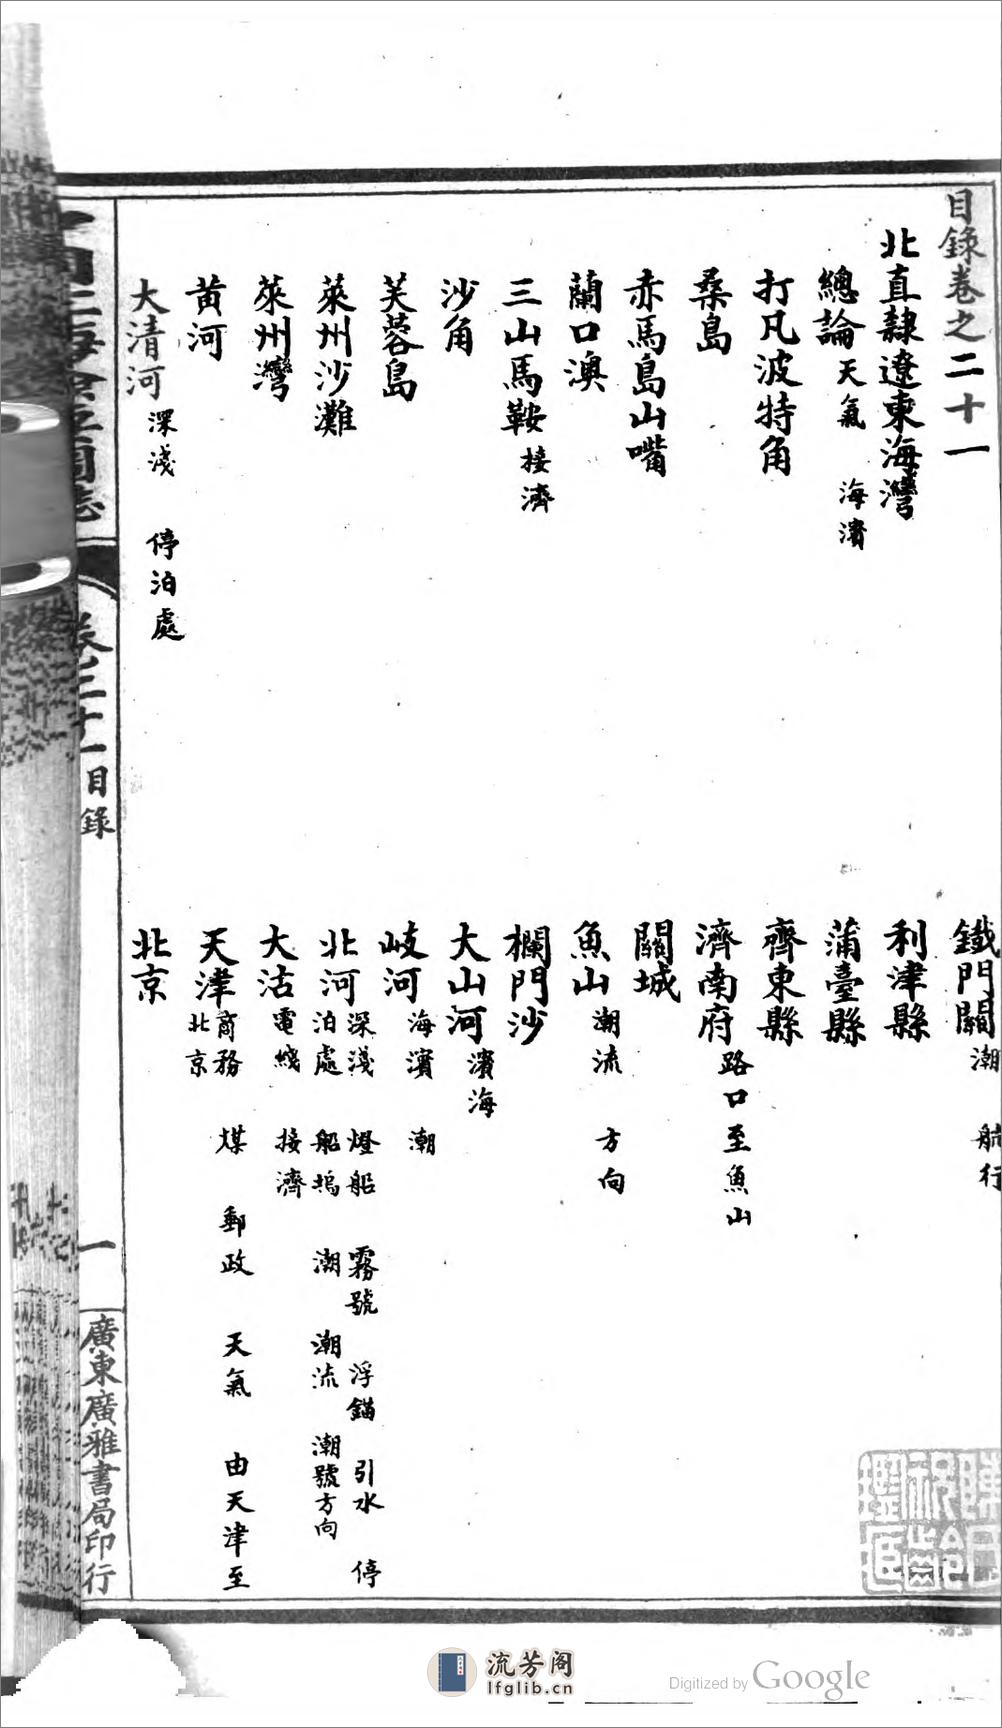 目錄卷之二十一
北直隸遼東海灣
總論 天氣 海濱
打凡波特角
桑島
赤馬島山嘴
蘭口澳
三山馬鞍 接濟
沙角
芙蓉島
萊州沙灘
萊州灣
黃河
大清河 深淺 停泊處
鐵門關 潮 航行
利津縣
蒲臺縣
齊東縣
濟南府 路口至魚山
關城
魚山 潮流 方向
欄門沙
大山河 濱海
岐河 海濱 潮
北河 深淺 燈船 霧號 浮錨 引水 停
泊處 船塢 潮 潮流 潮號方向
大沽 電綫 接濟
天津 商務 煤 郵政 天氣 由天津至
北京
北京
目錄
一
廣東廣雅書局印行
流芳阁
lfglib.cn
Digitized by Google